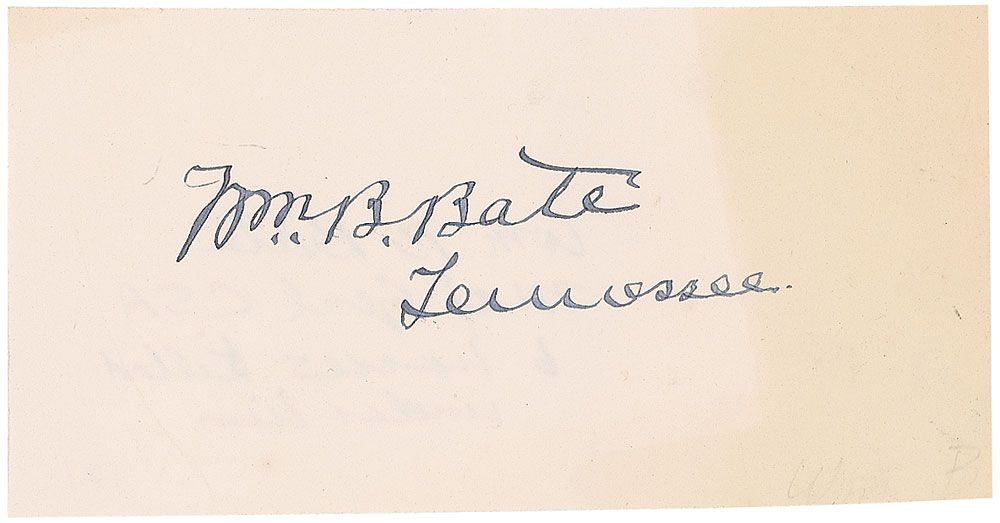 Wm. B. Bate
Tennessee.